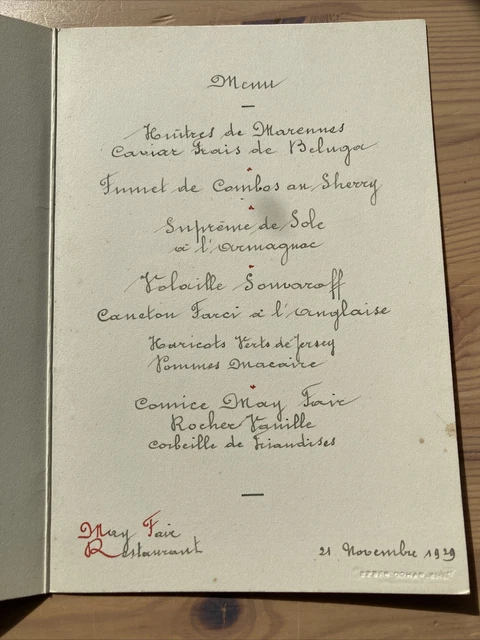 Menu
Huîtres de Marennes
Caviar Frais de Beluga
Fumet de Combos au Sherry
Suprême de Sole
à l'Armagnac
Volaille Souvaroff
Caneton Farci à l'Anglaise
Haricots Verts de Jersey
Pommes Macaire
Comice May Fair
Rocher Vanille
Corbeille de Friandises
May Fair
Restaurant
21 Novembre 1929